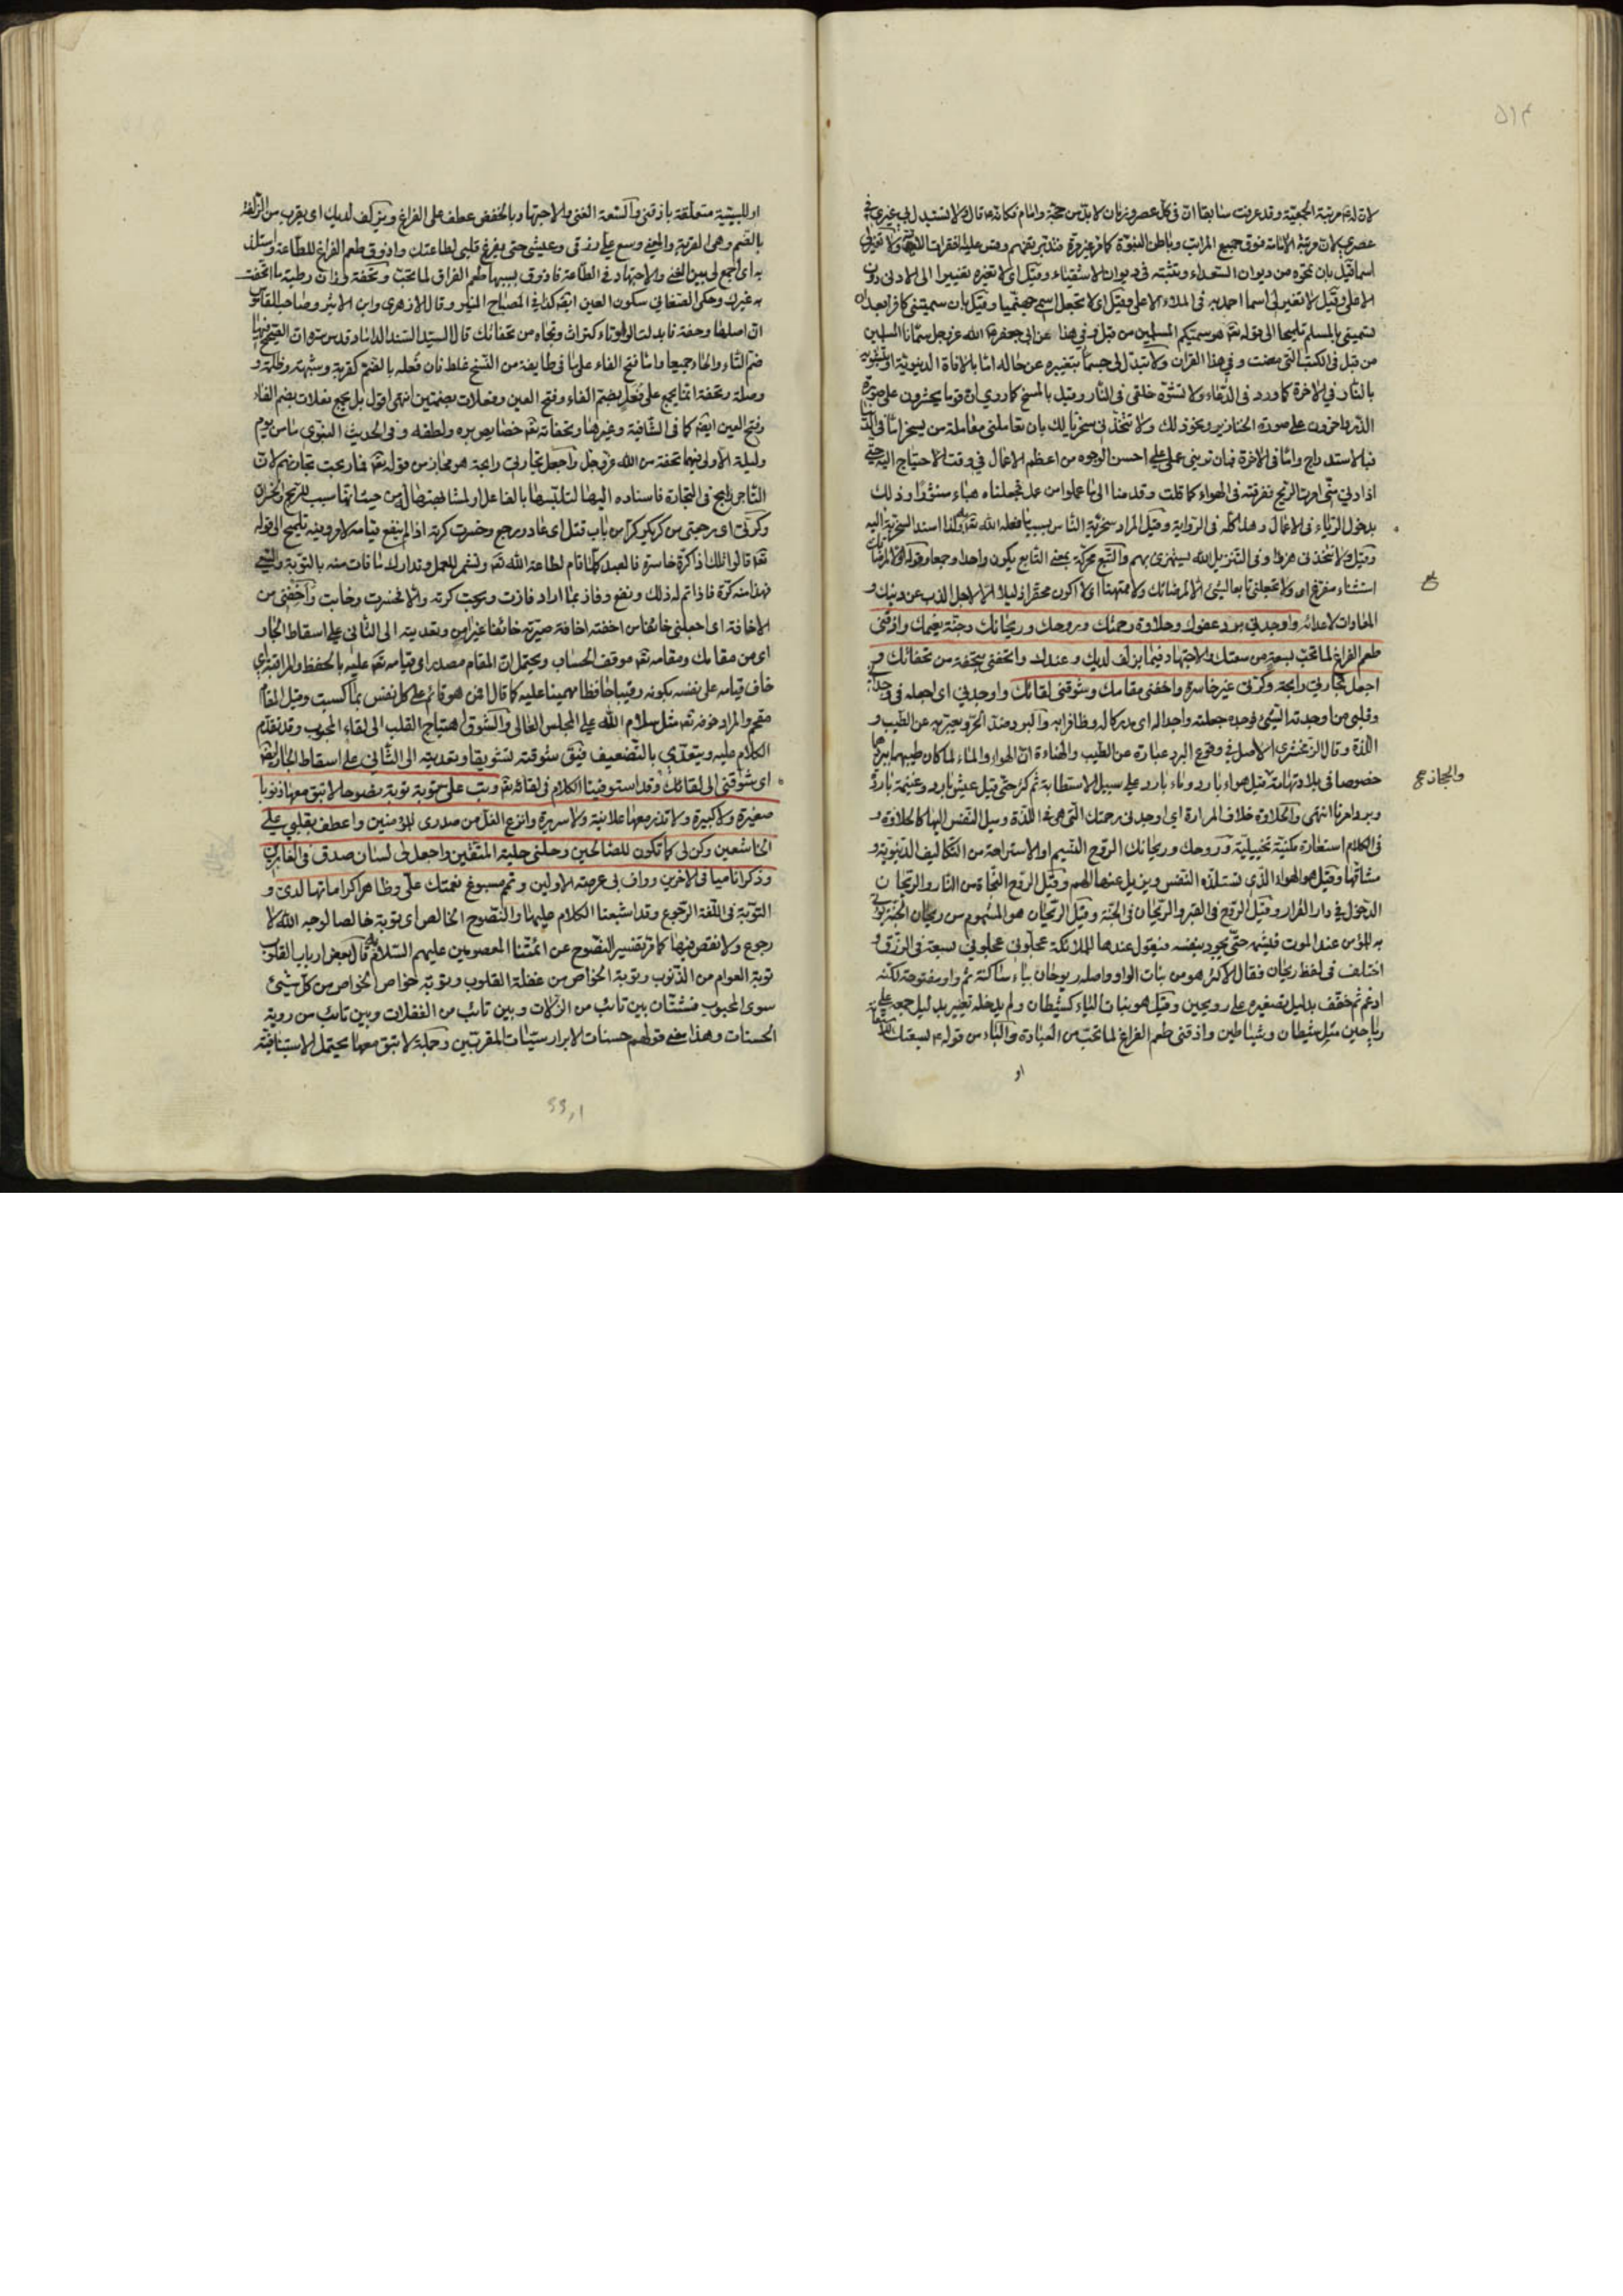 ۵۱۴
لان له مرتبة الجمعية وقد عرفت سابقا ان في كل عصر وزمان لا بد من حجة وامام فكانه قال ولا تستبدل بي غيري في
عصري لان مرتبة الامامة فوق جميع المراتب وباطن النبوة كما مر غير مرة فتدبر تفهم وقس عليه الفقرات ولا تغير لي
اسما قيل بان تمحوه من ديوان السعداء وتثبته في ديوان الاشقياء وقيل اي لا تغيره تغييرا الى الادنى دون
الاعلى وقيل لا تغير لي اسما احمد به في الملاء الاعلى وقيل اي لا تجعل اسمي جهنميا وقيل بان سميتني كافرا بعد ان
سميتني بالمسلم تلميحا الى قوله تعالى هو سميكم المسلمين من قبل وفي هذا عن ابي جعفر الله عز وجل سمانا المسلمين
من قبل في الكتب التي مضت وفي هذا القران ولا تبدل لي جسما بتغييره عن حاله اما بالافاة الدنيوية او بتشويه
بالنار في الاخرة كما ورد في الدعاء ولا تشوه خلقي في النار وقيل بالمسخ كما روي ان قوما يحشرون على صورة
الذر واخرون على صورة الخنازير ونحو ذلك ولا تتخذني سخريا لك بان تعاملني معاملة من يسخر اما في الدنيا
فبالاستدراج واما في الاخرة فبان تريني عملي على احسن الوجوه من اعظم الاعمال في وقت الاحتياج اليه حتى
اذا دنى مني امرت الريح ففرقته في الهواء كما قلت وقدمنا الى ما عملوا من عمل فجعلناه هباء منثورا وذلك
بدخول الرياء في الاعمال وهذا كله في الرواية وقيل المراد سخرية الناس بسبب ما فعله الله تعالى ولذا اسند السخرية اليه
وقيل ولا تتخذني هزوا وفي التنزيل الله يستهزئ بهم والتبع محركة بمعنى التابع يكون واحدا وجمعا وقوله الا لمرضاتك
استثناء مفرغ اي ولا تجعلني تابعا لشيء الا لمرضاتك ولا ممتهنا اي لا اكون محقرا ذليلا الا لاجل الذب عن دينك و
المعادات لاعدائه واوجدني برد عفوك وحلاوة رحمتك وروحك وريحانك وجنة نعيمك واذقني
طعم الفراغ لما تحب بسعة من سعتك والاجتهاد فيما يزلف لديك وعندك واتحفني بتحفة من تحفاتك و
اجعل تجارتي رابحة وكرتي غير خاسرة واخفني مقامك وشوقني لقائك واوجدني اي اجعله في وجداني
وقلبي من اوجدته الشيء فوجده جعلته واجدا له اي مدركا له وظافرا به والبرد ضد الحر ويعبر به عن الطيب و
اللذة وقال الزمخشري الاصل في وقوع البرد عبارة عن الطيب والهناءة ان الهواء والماء لما كان طيبهما ببردهما
خصوصا في بلاد تهامة قيل هواء بارد وماء بارد على سبيل الاستطابة ثم كثر حتى قيل عيش بارد وغنيمة باردة
وبرد امرنا انتهى والحلاوة خلاف المرارة اي اوجدني رحمتك التي هي في اللذة وميل النفس اليها كالحلاوة و
في الكلام استعارة مكنية تخييلية وروحك وريحانك الروح النسيم او الاستراحة من التكاليف الدنيوية و
مشاقها وقيل هو الهواء الذي تستلذه النفس ويزيل عنها الهم وقيل الروح النجاة من النار والريحان
الدخول في دار القرار وقيل الروح في القبر والريحان في الجنة وقيل الريحان هو المشموم من ريحان الجنة يؤتى
به المؤمن عند الموت فيشمه حتى يجود بنفسه فيقول عندها للملائكة عجلوني عجلوني بسعة في الرزق و
اختلف في لفظ ريحان فقال الاكثر هو من بنات الواو واصله ريوحان بياء ساكنة ثم واو مفتوحة لكنه
ادغم ثم خفف بدليل تصغيره على رويحين وقيل هو بنات الياء كشيطان ولم يدخله تغيير بدليل جمعه على
رياحين مثل شيطان وشياطين واذقني طعم الفراغ لما تحب من العبادة والباء من قوله بسعتك
او
والمجاز
او للسببية متعلقة باذقني والسعة الغنى والاجتهاد بالخفض عطف على الفراغ ويزلف لديك اي يقرب من الزلفة
بالضم وهي القربة والمعنى وسع علي رزقي وعيشي حتى يفرغ قلبي لطاعتك واذوق طعم الفراغ للطاعة واستلذ
به اي اجمع لي بين الغنى والاجتهاد في الطاعة فاذوق بسببها طعم الفراق لما تحب وتحفة وزان رطبة ما اتحفت
به غيرك وحكى الصغاني سكون العين ايضا كذا في المصباح المنير وقال الازهري وابن الاثير وصاحب القاموس
ان اصلها وحفة فابدلت الواو تاء كتراث وتجاه من تحفاتك قال السيد السند الداماد قدس سره
ضم التاء والحاء جميعا واما فتح الفاء على ما في طايفة من النسخ غلط فان فعله بالضم كقربة وشبهة وظلمة و
وصلة وتحفة انما يجمع على فعل بضم الفاء وفتح العين وفعلات بضمتين انتهى اقول بل يجمع بفعلات بضم الفاء
وفتح العين ايضا كما في الشافية وغيرها وتحفاته تعالى خصايص بره ولطفه وفي الحديث النبوي ما من يوم
وليلة الا ولي فيهما تحفة من الله عز وجل واجعل تجارتي رابحة هو مجاز من قوله تعالى فما ربحت تجارتهم لان
التاجر رابح في التجارة فاسناده اليها لتلبسها بالفاعل او لمشابهتها اياه من حيث انها سبب للربح والخسران
وكرتي اي رجعتي من كر يكر كرا من باب قتل اي عاد ورجع وخسرت كرته اذا لم ينفع قيامه لامر وفيه تلميح الى قوله
تعالى قالوا تلك اذا كرة خاسرة فالعبد كلما قام لطاعة الله تعالى وتشمر للعمل وتدارك ما فات منه بالتوبة والسعي
فهذا منه كرة فاذا تم له ذلك ونفع وفاز بما اراد فازت وربحت كرته والا خسرت وخابت واخفني من
الاخافة اي اجعلني خائفا من اخفته اخافة صيرته خائفا غير امن وتعديته الى الثاني على اسقاط الجار
اي من مقامك ومقامه تعالى موقف الحساب ويحتمل ان المقام مصدر اي قيامه تعالى عليه بالحفظ والمراقبة اي
خاف قيامه على نفسه بكونه رقيبا حافظا مهيمنا عليه كما قال افمن هو قائم على كل نفس بما كسبت وقيل المقام
مقحم والمراد خوفه تعالى مثل سلام الله على المجلس العالي والشوق اهتياج القلب الى لقاء المحبوب وقد تقدم
الكلام عليه ويتعدى بالتضعيف فيق شوقته تشويقا وتعديته الى الثاني على اسقاط الجار ايضا
اي شوقني الى لقائك وقد استوفينا الكلام في لقائه تعالى وتب على توبة نصوحا لا تبق معها ذنوبا
صغيرة ولا كبيرة ولا تذر معها علانية ولا سريرة وانزع الغل من صدري للمؤمنين واعطف بقلبي على
الخاشعين وكن لي كما تكون للصالحين وحلني حلية المتقين واجعل لي لسان صدق في الغابرين
وذكرا ناميا في الاخرين وواف بي عرصة الاولين وتمم سبوغ نعمتك علي وظاهر كراماتها لدي و
التوبة في اللغة الرجوع وقد اشبعنا الكلام عليها والنصوح الخالص اي توبة خالصا لوجه الله لا
رجوع ولا نقص فيها كما مر تفسير النصوح عن ائمتنا المعصومين عليهم السلام قال بعض ارباب القلوب
توبة العوام من الذنوب وتوبة الخواص من غفلة القلوب وتوبة خواص الخواص من كل شيئ
سوى المحبوب فشتان بين تائب من الزلات وبين تائب من الغفلات وبين تائب من روية
الحسنات وهذا معنى قولهم حسنات الابرار سيئات المقربين وجملة لا تبق معها يحتمل الاستينافية